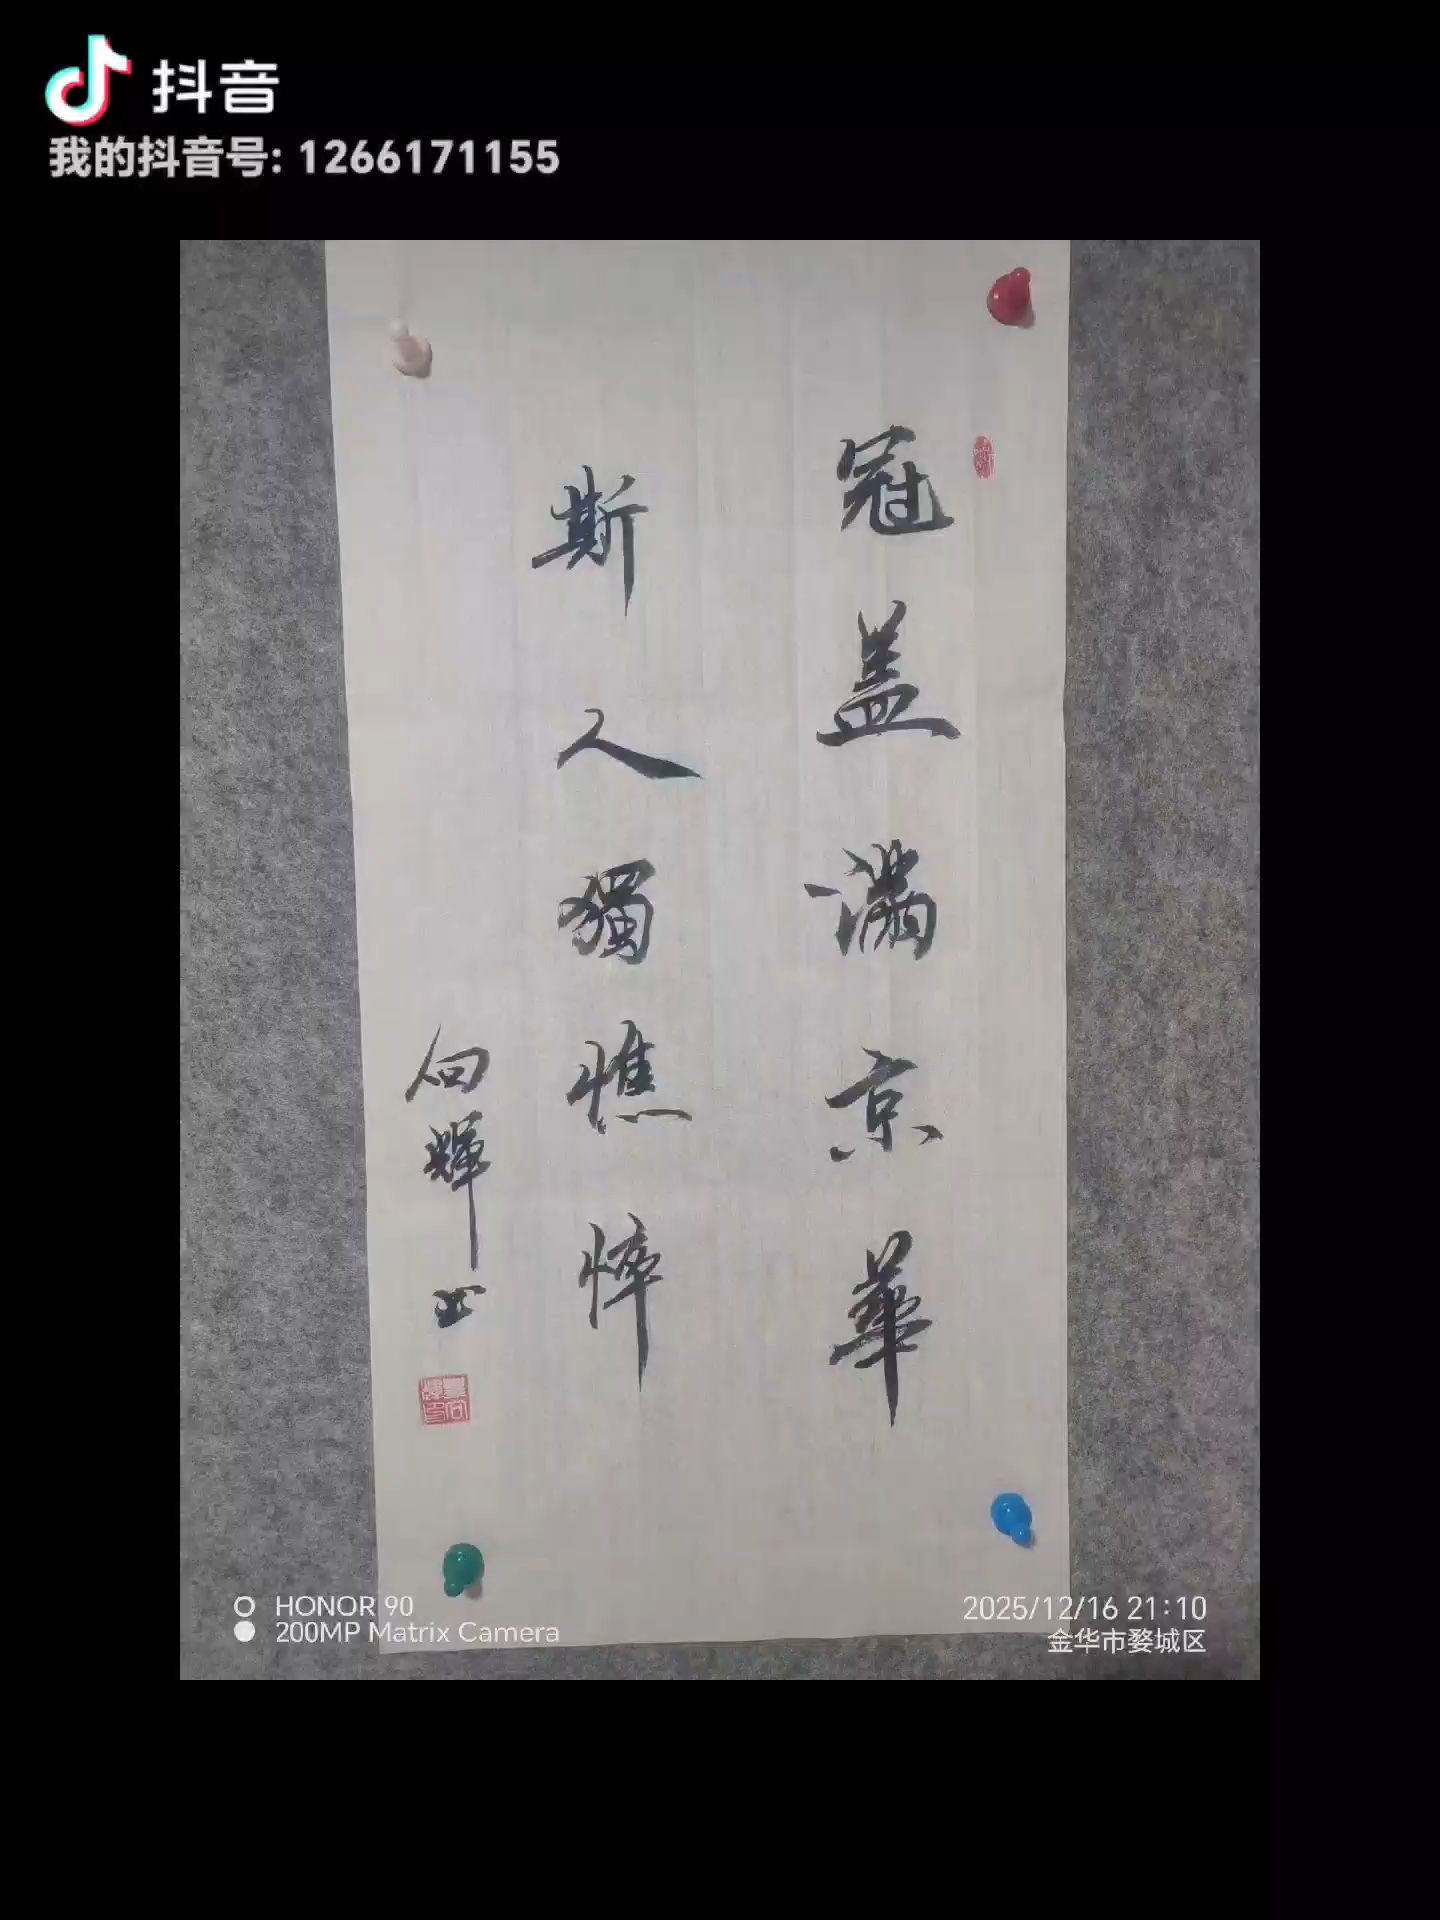 抖音
我的抖音号: 1266171155
冠盖满京華
斯人獨憔悴
向輝书
HONOR 90
200MP Matrix Camera
2025/12/16 21:10
金华市婺城区